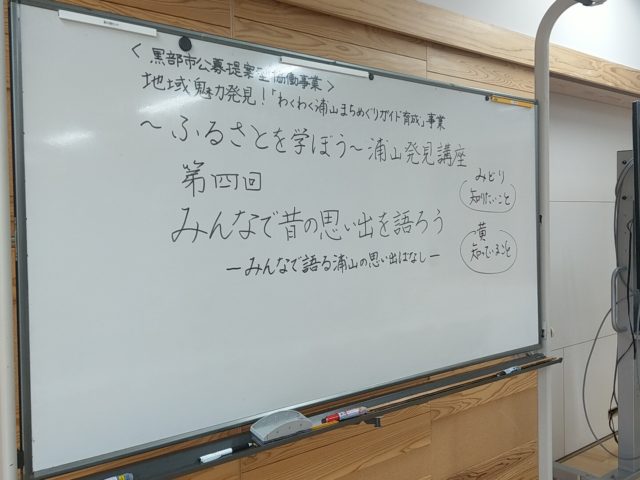 <黒部市公募提案型協働事業>
地域魅力発見!「わくわく浦山まちめぐりガイド育成」事業
~ふるさとを学ぼう~浦山発見講座
第四回
みんなで昔の思い出を語ろう
ーみんなで語る浦山の思い出はなしー
みどり
知りたいこと
黄
知っていること